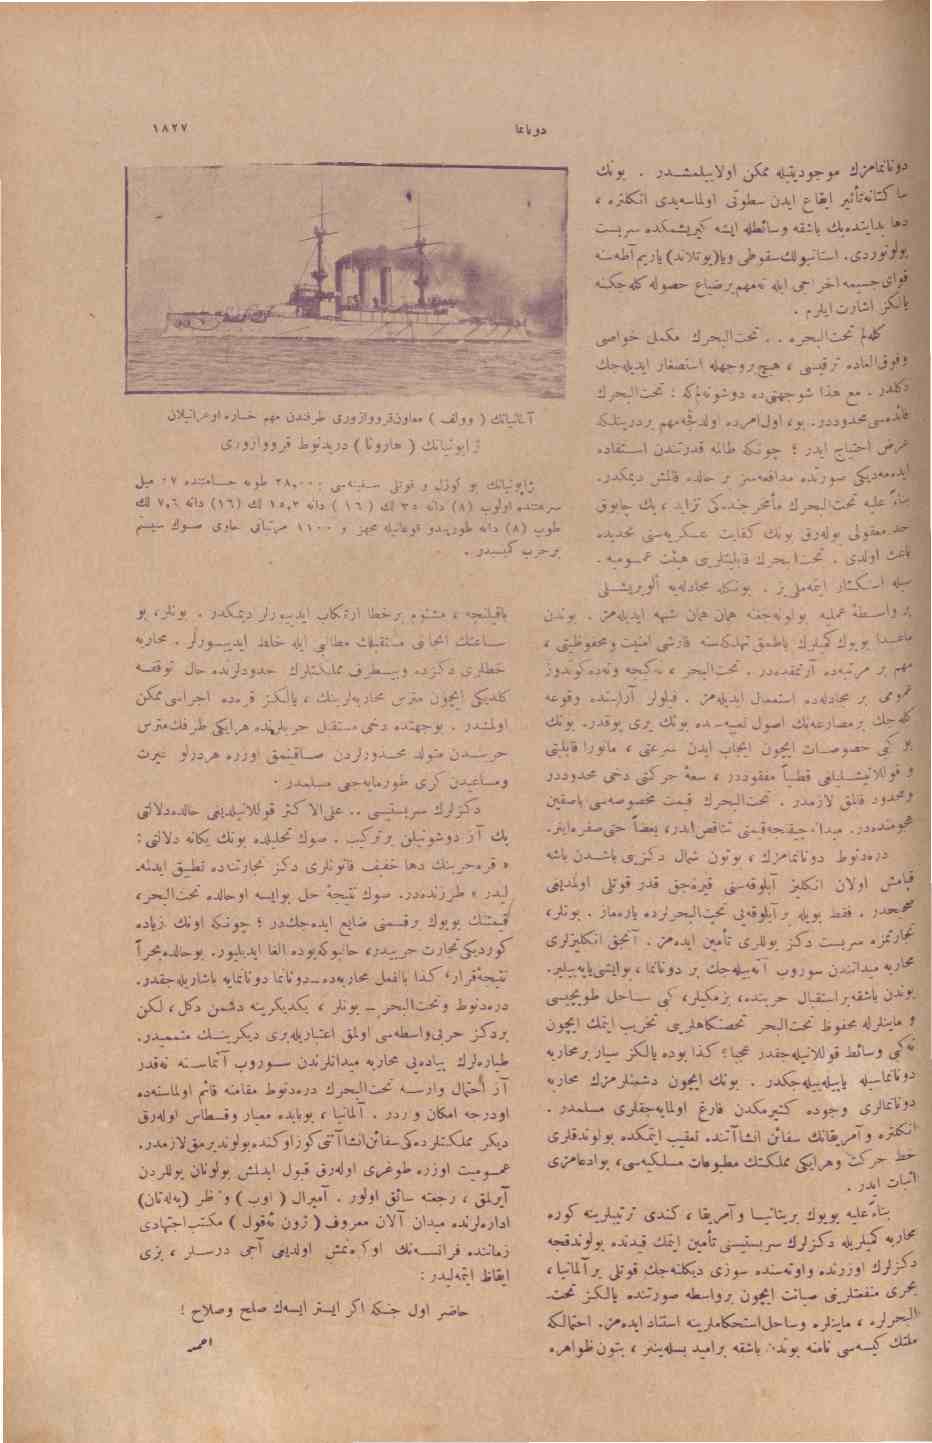 دونانما
١٨٢٧
دونانمامزك موجوديتيله ممكن اولابيلمشدر . بونك
ساكتانه تأثير ايقاع ايدن سطوتى اولماسه‌يدى انكلتره ،
دها بدايتده‌پك باشقه وسائطله ايشه كيريشمكده سربست
بولونوردى. استانبولك سقوطى ويا(يوتلاند) ياريم آطه‌سنه
قواى جسيمه اخراجى ايله نه‌مهم برضياع حصوله كله‌جكنه
يالكز اشارت ايلرم .
كله‌لم تحت‌البحره . . تحت‌البحرك مكمل خواصى
وفوق‌العاده ترقيسى ، هيچ بروجهله استصغار ايديله‌جك
دكلدر . مع هذا شوجهتى‌ده دوشونه‌لم‌كه : تحت‌البحرك
فائده‌سى محدوددر. بو، اول‌امرده اولدقجه‌مهم بردرينلكه
عرض احتياج ايدر ؛ چونكه طالمه قدرتندن استفاده
ايده‌مه‌ديكى صورتده مدافعه‌سز بر حالده قالمش ديمكدر.
بناءً عليه تحت‌البحرك مأمخرجنده‌كى تزايد ، پك چابوق
حد معقولى بوله‌رق بونك كفايت عسكريه‌سنى تحديده
باعث اولدى . تحت‌البحرك قابليتلريى هيئت عموميه‌.
سيله استكثار ايتمه‌ملى‌يز . بونكله مجادله‌يه ألويريشلى
بر واسطهٔ عمليه بولونه‌جغنه همان همان شبهه ايديله‌مز . بوندن
ماعدا بويوك كميلرك باطمق تهلكه‌سنه قارشى امنيت ومحفوظيتى ،
مهم بر مرتبه‌ده آرتمقده‌در . تحت‌البحر ، نه‌كيجه ونه‌ده‌كوندوز
عمومى بر مجادله‌ده استعمال ايديله‌مز . فيلولر آراسنده وقوعه
كله‌جك برمصارعه‌نك اصول تعبيه‌سنده بونك يرى يوقدر. بونك
بو كبى خصوصات ايچون ايجاب ايدن سرعتى ، مانورا قابليتى
و قوللانيشليلغى قطعياً مفقوددر ، سعهٔ حركتى دخى محدوددر
ومحدود قالمق لازمدر . تحت‌البحرك قيمت مخصوصه‌سى باصقين
هجومنده‌در. ميدانه چيقنجه‌قيمتى تناقص ايدر، بعضاً حتى صفره‌اينر.
دره‌دنوط دونانمامزك ، بوتون شمال دكزينى باشدن باشه
قپامش اولان انكليز آبلوقه‌سنى قيره‌جق قدر قوتلى اولمديغى
صحيحدر . فقط بويله بر آبلوقه‌يى تحت‌البحرلرده ياره‌ماز . بونلر،
تجارتمزه سربست دكز يوللرى تأمين ايده‌مز . آنجق انكليزلرى
محاربه ميدانندن سوروب آته‌بيله‌جك بر دونانما ، بوايشى‌ياپه‌بيلير.
بوندن باشقه‌براستقبال حربنده، بزمكيلر، كبى ساحل طوپچيسى
و ماينلرله محفوظ تحت‌البحر تحصنكاهلرينى تخريب ايتمك ايچون
نه‌كبى وسائط قوللانيله‌جقدر عجبا ؟ كذا بوده يالكز سيار برمحاربه
دونانماسيله ياپيله‌بيله‌جكدر . بونك ايچون دشمنلرمزك محاربه
دونانمالرى وجوده كتيرمكدن فارغ اولمايه‌جقلرى مسلمدر .
انكلتره وآمريقانك سفائن انشاآتنده تعقيب ايتمكده بولوندقلرى
خط حركت وهرايكى مملكتك مطبوعات مسلكيه‌سى، بوادعامزى
اثبات ايدر .
بناءً عليه بويوك بريتانيا وآمريقا ، كندى ترتيبلرينه كوره
محاربه كميلريله دكزلرك سربستيسنى تأمين ايتمك قيدنده بولوندقجه
دكزلرك اوزرنده واوته‌سنده سوزى ديكلنه‌جك قوتلى برآلمانيا ،
بحرى منفعتلرينى صيانت ايچون برواسطه صورتنده يالكز تحت‌
البحرلره ، ماينلره وساحل‌استحكاملرينه استناد ايده‌مز. احتمالكه
ملتك كيسه‌سى نامنه بوندن باشقه براميد بسله‌ينلر ، بتون ظواهره
آلمانيانك ( وولف ) معاون‌قرووازورى طرفندن مهم خساره اوغراتيلان
ژاپونيانك ( هارونا ) دريدنوط قرووازورى
ژاپونيانك بو كوزل و قوتلى سفينه‌سى : ٢٨,٠٠٠ طونه جسامتنده ٢٧ ميل
سرعتنده اولوب (٨) دانه ٣٥ لك ( ١٦ ) دانه ١٥,٢ لك (١٦) دانه ٧,٦ لك
طوپ (٨) دانه طورپيدو قوغانيله مجهز و ١١٠٠ مرتباتى حاوى صوك سيستم
برحرب كميسيدر .
باقيلنجه ، مشئوم برخطا ارتكاب ايدييورلر ديمكدر . بونلر، بو
ساعتك ايجاباتى مستقبلك مطالبى ايله خلط ايدييورلر . محاربه
خطلرى دكزده وبيطرف مملكتلرك حدودلرنده حال توقفه
كلديكى ايچون مترس محاربه‌لرينك ، يالكز قره‌ده اجراسى ممكن
اولمشدر . بوجهتده دخى مستقبل حربلرنده هرايكى طرفك‌مترس
حربندن متولد محذورلردن صاقنمق اوزره هردرلو غيرت
ومساعيدن كرى طورمايه‌جغى مسلمدر .
دكزلرك سربستيسى .. على‌الاكثر قوللانيلديغى حالده‌دلالتى
پك آز دوشونيلن برتركيب . صوك تحليلده بونك يكانه دلالتى :
« قره‌حربنك دها خفيف قانونلرى دكز تجارتنه‌ده تطبيق ايدلمه‌.
ليدر » طرزنده‌در. صوك نتيجهٔ حل بوايسه اوحالده تحت‌البحر،
قيمتنك بويوك برقسمنى ضايع ايده‌جكدر ؛ چونكه اونك زياده
كورديكى‌تجارت حربيدر، حالبوكه‌بوده الغا ايديليور. بوحالده‌مجراً
نتيجهٔ‌قرار، كذا بالفعل محاربه‌ده_دونانما دونانمايه باشاريله‌جقدر.
دره‌دنوط وتحت‌البحر _ بونلر ، يكديكرينه دشمن دكل ، لكن
بردكز حربى‌واسطه‌سى اولمق اعتباريله‌برى ديكرينك متممیدر.
طياره‌لرك پياده‌يى محاربه ميدانلرندن سوروب آتماسنه نه‌قدر
آز احتمال وارسه تحت‌البحرك دره‌دنوط مقامنه قائم اولماسنه‌ده
اودرجه امكان واردر . آلمانيا ، بوبابده معيار وقسطاس اوله‌رق
ديكر مملكتلرده‌كى‌سفائن‌انشاآتنى‌كوزاوكنده‌بولوندیرمق‌لازمدر.
عموميت اوزره طوغرى اوله‌رق قبول ايدلمش بولونان يوللردن
آيريلمق ، رجعته سائق اولور . آميرال ( اوب ) و ناظر (په‌له‌تان)
اداره‌لرنده ميدان آلان معروف ( ژون ئه‌قول ) مكتب‌اجتهادى
زماننده فرانسه‌نك اوكره‌نمش اولديغى آجى درسلر ، بزى
ايقاظ ايتمه‌ليدر :
حاضر اول جنكه اكر ايستر ايسه‌ك صلح وصلاح !
احمد